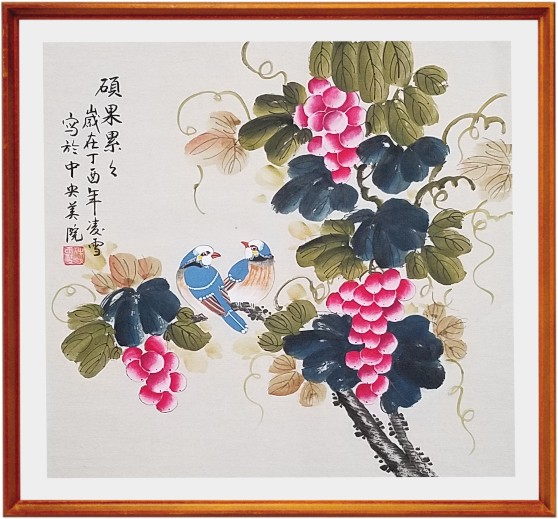 硕果累々
歲在丁酉年凌雪
寫於中央美院